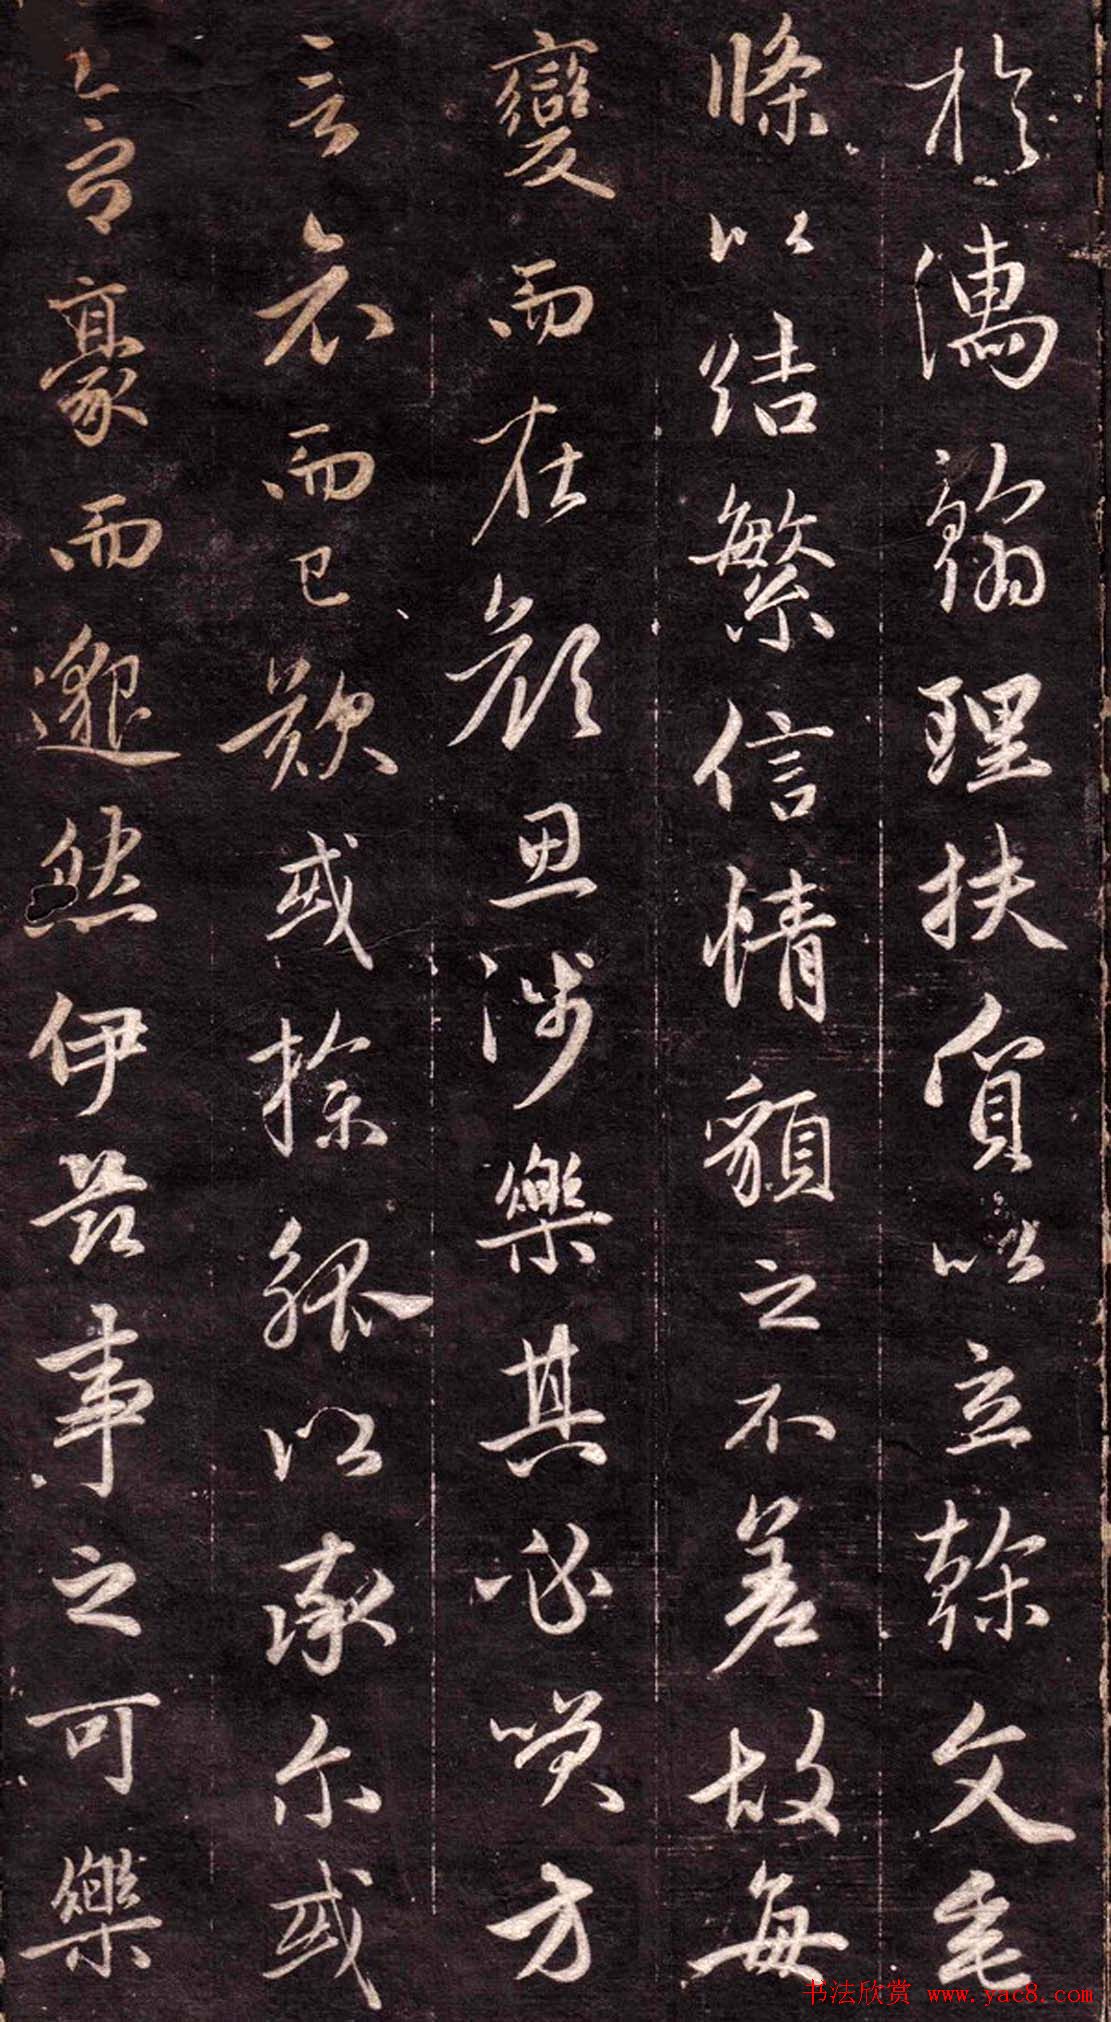 於濡翰理扶質以立幹文垂
條以結繁信情貌之不差故每
變而在顏思涉樂其必笑方
言哀而已歎或操觚以率爾或
含豪而邈然伊茲事之可樂
书法欣赏 www.yac8.com